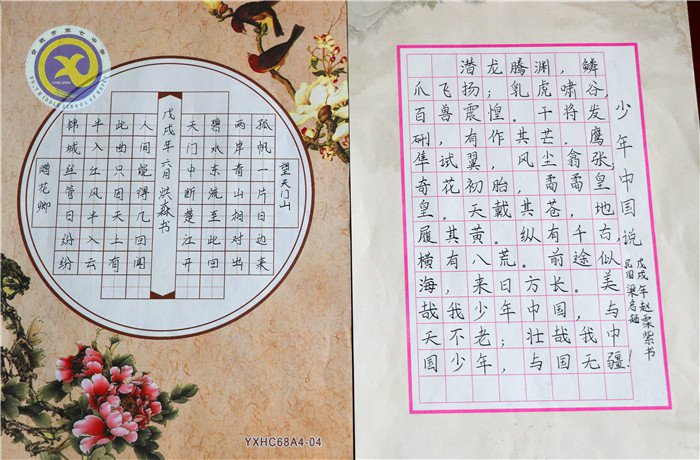 合肥市第七中学
NO.7 MIDDLE SCHOOL OF HEFEI
赠花卿
锦城丝管日纷纷
半入江风半入云
此曲只因天上有
人间能得几回闻
戊戌年六月洪森书
天门中断楚江开
碧水东流至此回
两岸青山相对出
孤帆一片日边来
望天门山
YXHC68A4-04
少年中国说
民国梁启超
戊戌年赵霖紫书
潜龙腾渊，鳞
爪飞扬；乳虎啸谷，
百兽震惶。干将发
硎，有作其芒。鹰
隼试翼，风尘翕张。
奇花初胎，矞矞皇
皇。天戴其苍，地
履其黄。纵有千古，
横有八荒。前途似
海，来日方长。美
哉我少年中国，与
天不老；壮哉我中
国少年，与国无疆！